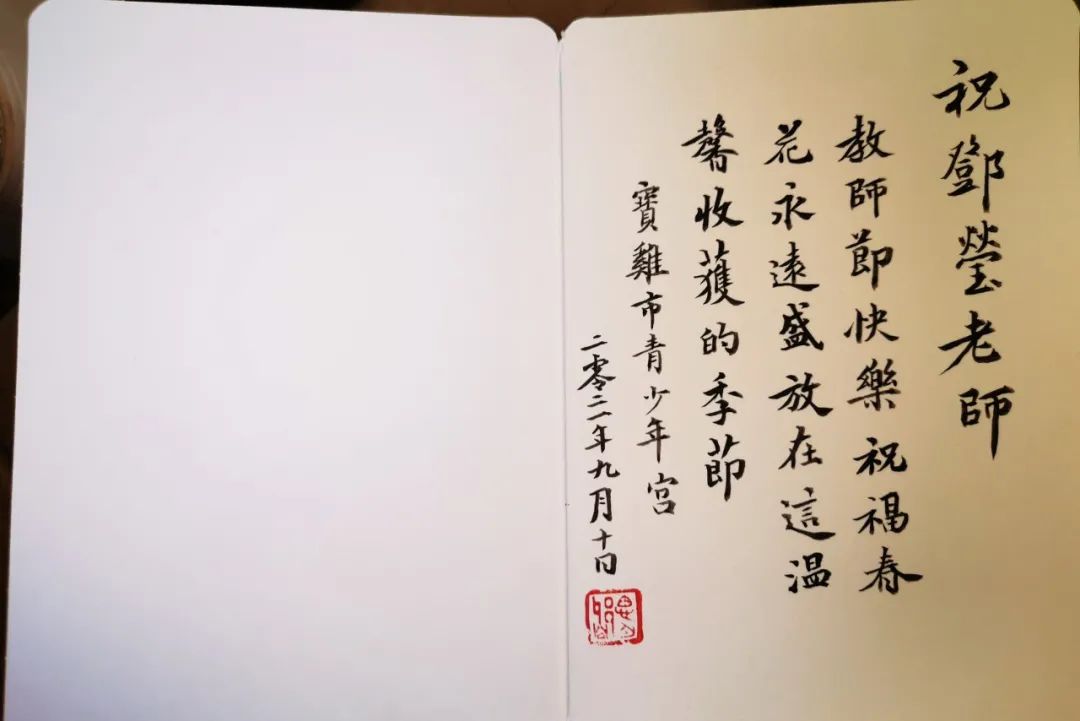 祝鄧瑩老師
教師節快樂祝福春
花永遠盛放在這温
馨收獲的季節
寶雞市青少年宫
二零二一年九月十日